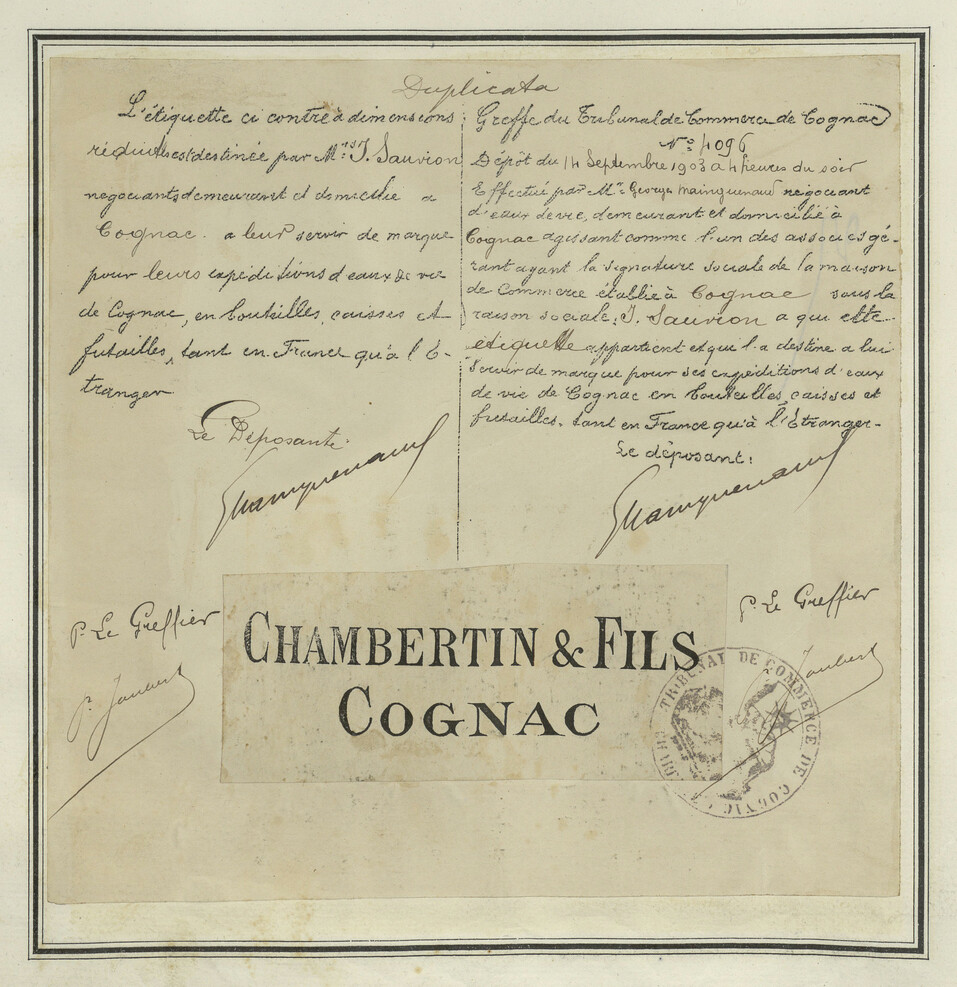 Duplicata
L'étiquette ci contre à dimensions
réduites est destinée par Mrs J. Sauvion
negociants demeurant et domicilie a
Cognac. a leur servir de marque
pour leurs expéditions d'eaux de vie
de Cognac, en bouteilles, caisses et
futailles, tant en France qu'à l'É-
tranger
Le Déposante.
Gmainguenaud
Greffe du Tribunal de Commerce de Cognac
No 4096
Dépôt du 14 Septembre 1903 à 4 heures du soir
Effectué par Mr Georges Mainguenaud négociant
d'eaux de vie, demeurant et domicilié à
Cognac agissant comme l'un des associés gé-
rant ayant la signature sociale de la maison
de Commerce établie à Cognac sous la
raison sociale: J. Sauvion a qui cette
etiquette appartient et qui l'a destine a lui
servir de marque pour ses expéditions d'eaux
de vie de Cognac en bouteilles, caisses et
futailles, tant en France qu'à l'Étranger-
Le déposant:
Gmainguenaud
P. Le Greffier
P. Joubert
CHAMBERTIN & FILS
COGNAC
P. Le Greffier
Joubert
TRIBUNAL DE COMMERCE DE COGNAC